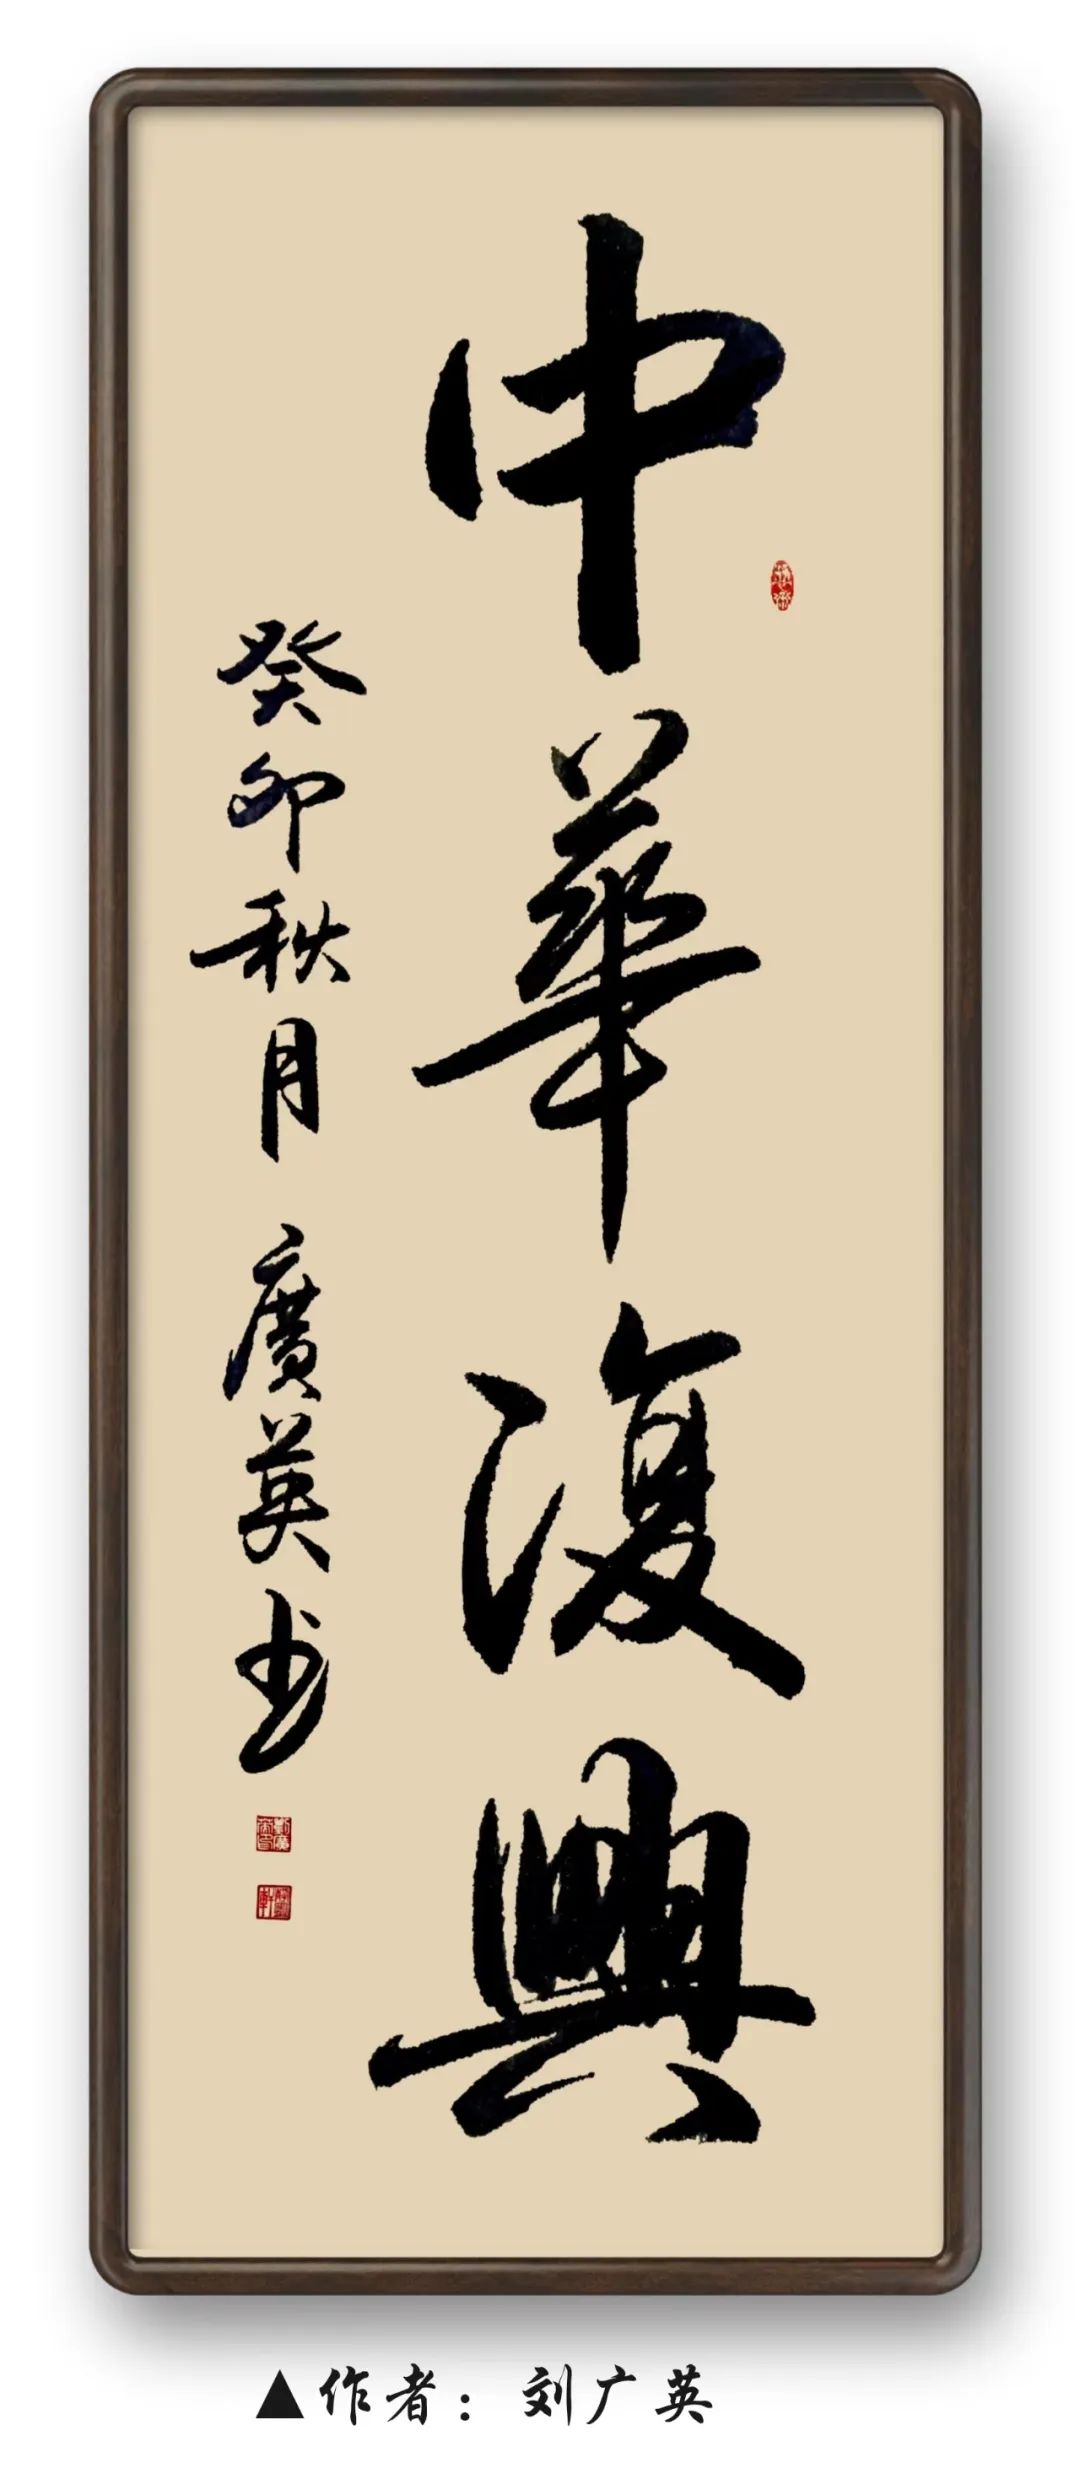 中華復興
癸卯秋月 廣英书
▲作者：刘广英